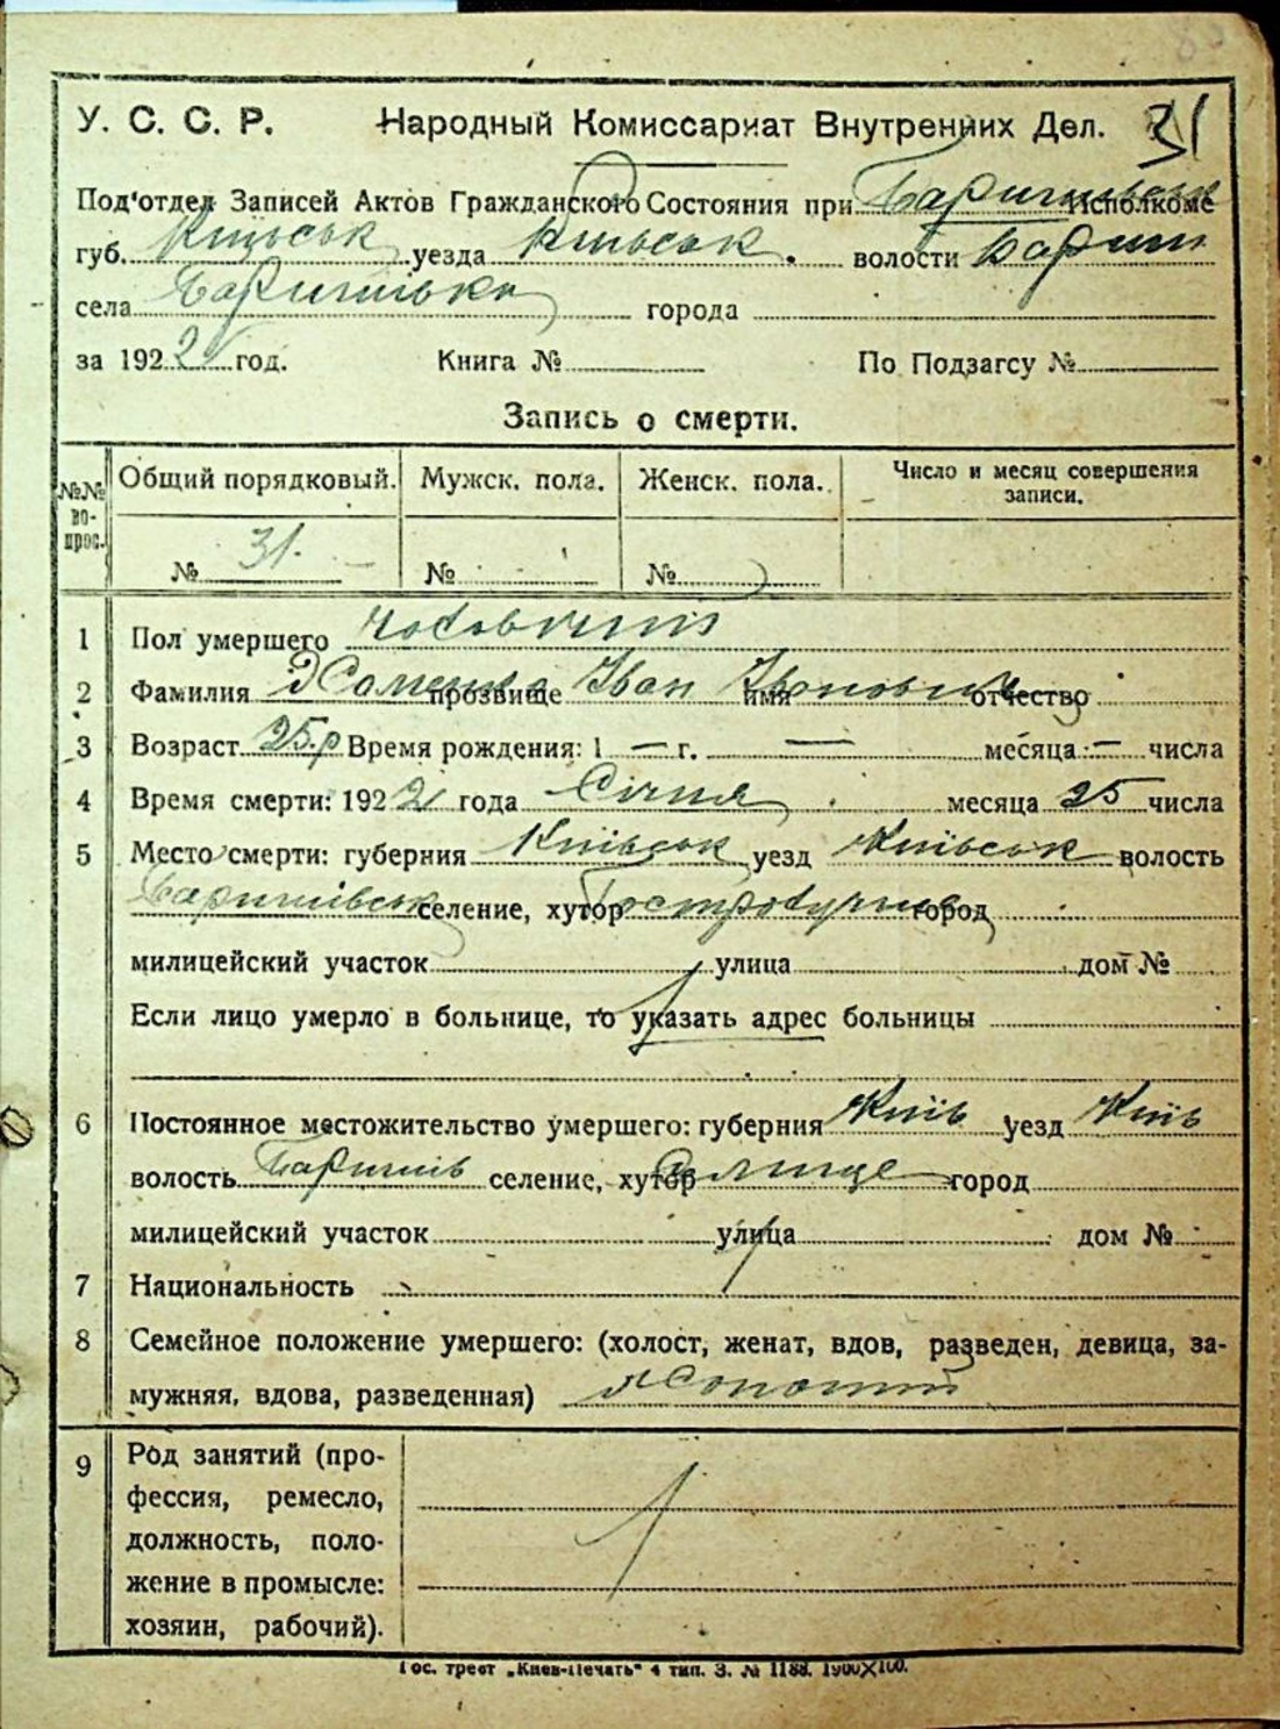 У. С. С. Р. Народный Комиссариат Внутренних Дел. 31
Под'отдел Записей Актов Гражданского Состояния при Исполкоме
губ. Київськ уезда Київськ. волости Бариш
села города
за 1922 год. Книга № По Подзагсу №
Запись о смерти.
№№ вопрос. Общий порядковый. Мужск. пола. Женск. пола. Число и месяц совершения записи.
№ 31. № №
1 Пол умершего чоловичий
2 Фамилия прозвище Іван имя Іванович отчество
3 Возраст 25 р Время рождения: 1 — г. — месяца — числа
4 Время смерти: 1922 года Січня месяца 25 числа
5 Место смерти: губерния Київськ уезд Київськ волость
Баришівськ селение, хутор город
милицейский участок улица дом №
Если лицо умерло в больнице, то указать адрес больницы
6 Постоянное местожительство умершего: губерния Київ уезд Київ
волость Баришів селение, хутор город
милицейский участок улица дом №
7 Национальность
8 Семейное положение умершего: (холост, женат, вдов, разведен, девица, за-
мужняя, вдова, разведенная)
9 Род занятий (про-
фессия, ремесло,
должность, поло-
жение в промысле:
хозяин, рабочий).
Гос. трест „Киев-Печать" 4 тип. З. № 1188. 1900×100.